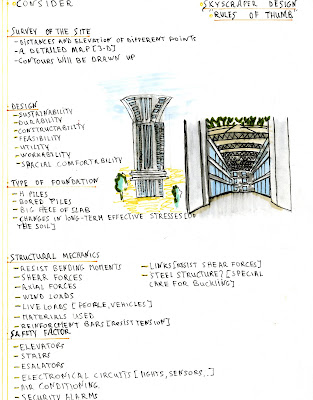 CONSIDER
SKYSCRAPER DESIGN
RULES OF THUMB
SURVEY OF THE SITE
-DISTANCES AND ELEVATION OF DIFFERENT POINTS
-A DETAILED MAP [3-D]
-CONTOURS WILL BE DRAWN UP
DESIGN
-SUSTAINABILITY
-DURABILITY
-CONSTRUCTABILITY
-FEASIBILITY
-UTILITY
-WORKABILITY
-SPACIAL COMFORTABILITY
TYPE OF FOUNDATION
-H PILES
-BORED PILES
-BIG PIECE OF SLAB
-CHANGES IN LONG-TERM EFFECTIVE STRESSES [OF
THE SOIL]
STRUCTURAL MECHANICS
-RESIST BENDING MOMENTS
-SHEAR FORCES
-AXIAL FORCES
-WIND LOADS
-LIVE LOADS [PEOPLE, VEHICLES]
-MATERIALS USED
-REINFORCEMENT BARS [RESIST TENSION]
-LINKS [RESIST SHEAR FORCES]
-STEEL STRUCTURE? [SPECIAL
CARE FOR BUCKLING]
SAFETY FACTOR
-ELEVATORS
-STAIRS
-ESALATORS
-ELECTRONICAL CIRCUITS [LIGHTS, SENSORS...]
-AIR CONDITIONING
-SECURITY ALARMS